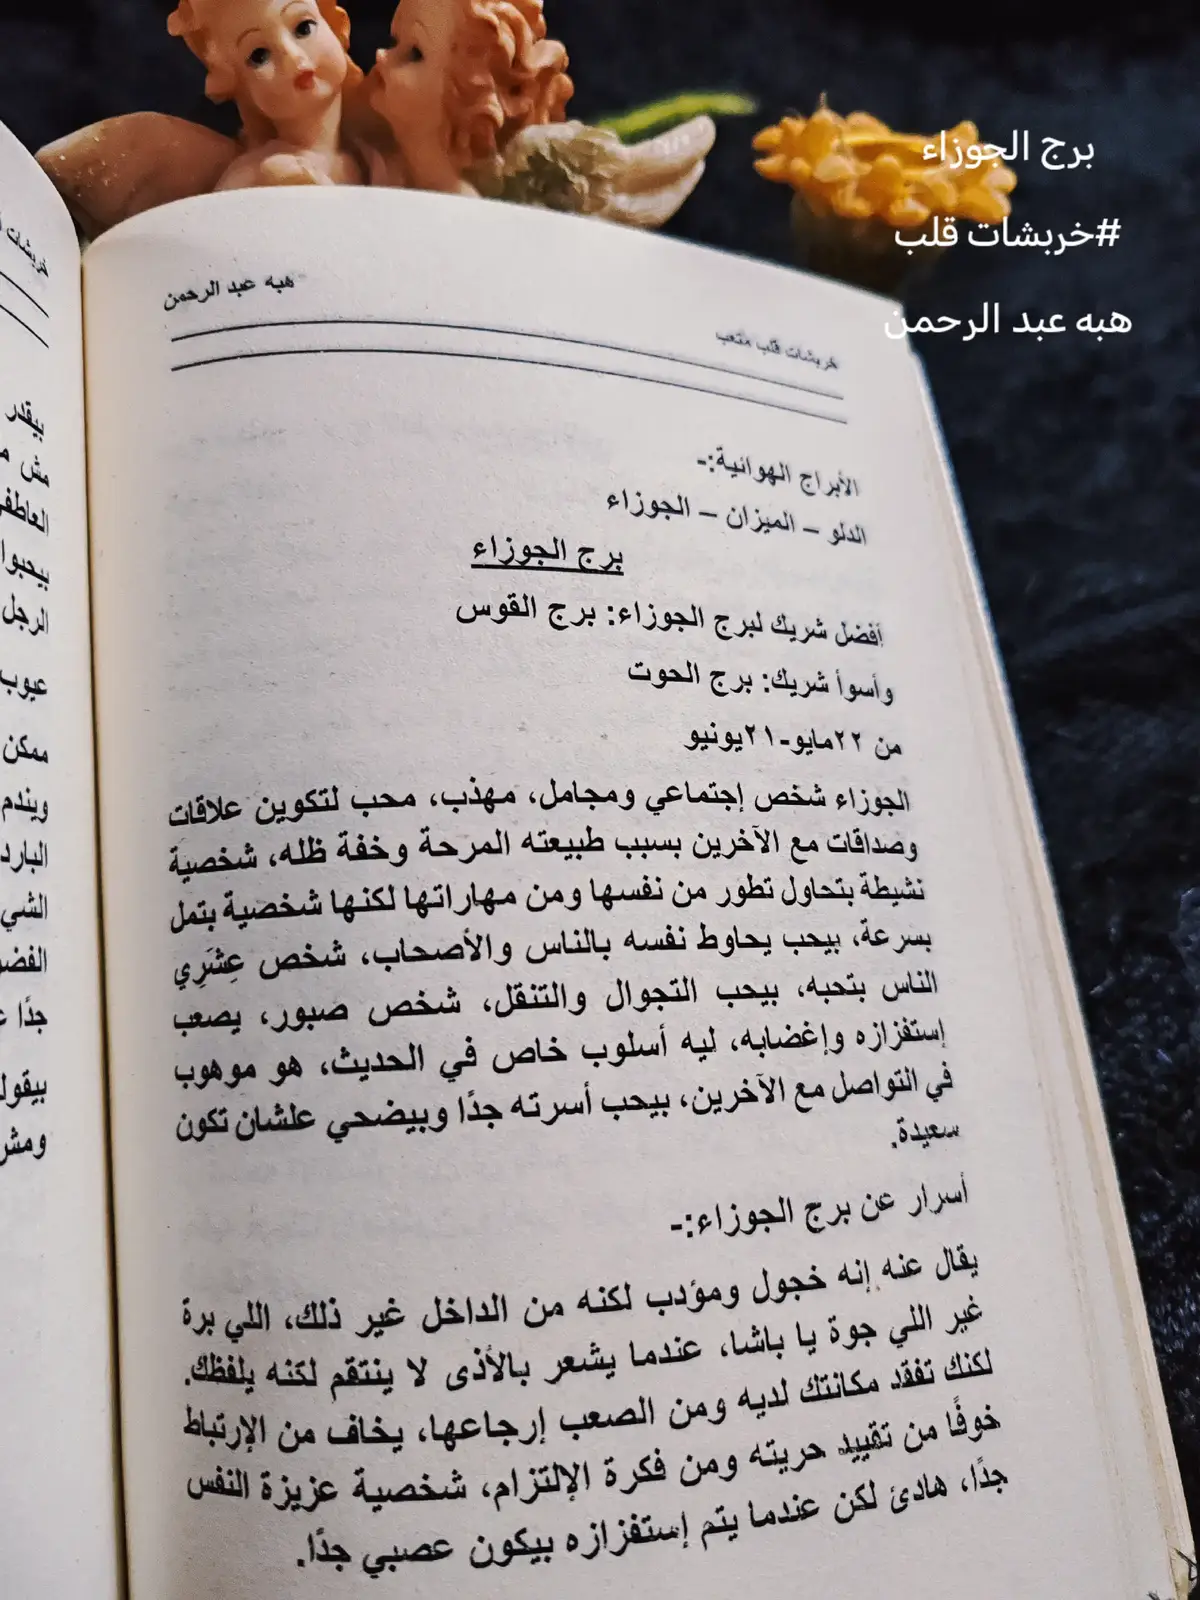 برج الجوزاء
#خربشات قلب
هبه عبد الرحمن
هبه عبد الرحمن
خربشات قلب متعب
الأبراج الهوائية:-
الدلو – الميزان – الجوزاء
برج الجوزاء
أفضل شريك لبرج الجوزاء: برج القوس
وأسوأ شريك: برج الحوت
من ٢٢مايو-٢١يونيو
الجوزاء شخص إجتماعي ومجامل، مهذب، محب لتكوين علاقات
وصداقات مع الآخرين بسبب طبيعته المرحة وخفة ظله، شخصية
نشيطة بتحاول تطور من نفسها ومن مهاراتها لكنها شخصية بتمل
بسرعة، بيحب يحاوط نفسه بالناس والأصحاب، شخص عِشَرِي
الناس بتحبه، بيحب التجوال والتنقل، شخص صبور، يصعب
إستفزازه وإغضابه، ليه أسلوب خاص في الحديث، هو موهوب
في التواصل مع الآخرين، بيحب أسرته جدًا وبيضحي علشان تكون
سعيدة.
أسرار عن برج الجوزاء:-
يقال عنه إنه خجول ومؤدب لكنه من الداخل غير ذلك، اللي برة
غير اللي جوة يا باشا، عندما يشعر بالأذى لا ينتقم لكنه يلفظك.
لكنك تفقد مكانتك لديه ومن الصعب إرجاعها، يخاف من الإرتباط
خوفًا من تقييد حريته ومن فكرة الإلتزام، شخصية عزيزة النفس
جدًا، هادئ لكن عندما يتم إستفزازه بيكون عصبي جدًا.
خربشات
بيقدر
مش
بيحبوا
الرجل
عيوب
ممكن
ويندم
البارد
الشي
جدًا
ومش